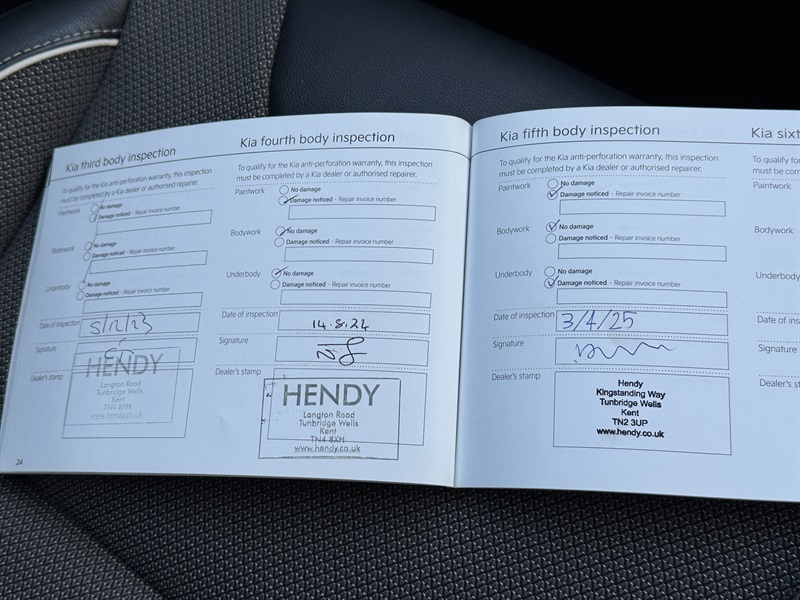 Kia third body inspection
To qualify for the Kia anti-perforation warranty, this inspection
must be completed by a Kia dealer or authorised repairer.
Paintwork
No damage
Damage noticed - Repair invoice number
Bodywork
No damage
Damage noticed - Repair invoice number
Underbody
No damage
Damage noticed - Repair invoice number
Date of inspection
5/12/23
Signature
Dealer's stamp
HENDY
Langton Road
Tunbridge Wells
Kent
TN4 8XH
www.hendy.co.uk
24
Kia fourth body inspection
To qualify for the Kia anti-perforation warranty, this inspection
must be completed by a Kia dealer or authorised repairer.
Paintwork
No damage
Damage noticed - Repair invoice number
Bodywork
No damage
Damage noticed - Repair invoice number
Underbody
No damage
Damage noticed - Repair invoice number
Date of inspection
14.8.24
Signature
Dealer's stamp
HENDY
Langton Road
Tunbridge Wells
Kent
TN4 8XH
www.hendy.co.uk
Kia fifth body inspection
To qualify for the Kia anti-perforation warranty, this inspection
must be completed by a Kia dealer or authorised repairer.
Paintwork
No damage
Damage noticed - Repair invoice number
Bodywork
No damage
Damage noticed - Repair invoice number
Underbody
No damage
Damage noticed - Repair invoice number
Date of inspection
3/4/25
Signature
Dealer's stamp
Hendy
Kingstanding Way
Tunbridge Wells
Kent
TN2 3UP
www.hendy.co.uk
Kia sixt
To qualify fo
must be com
Paintwork
Bodywork
Underbody
Date of ins
Signature
Dealer's st